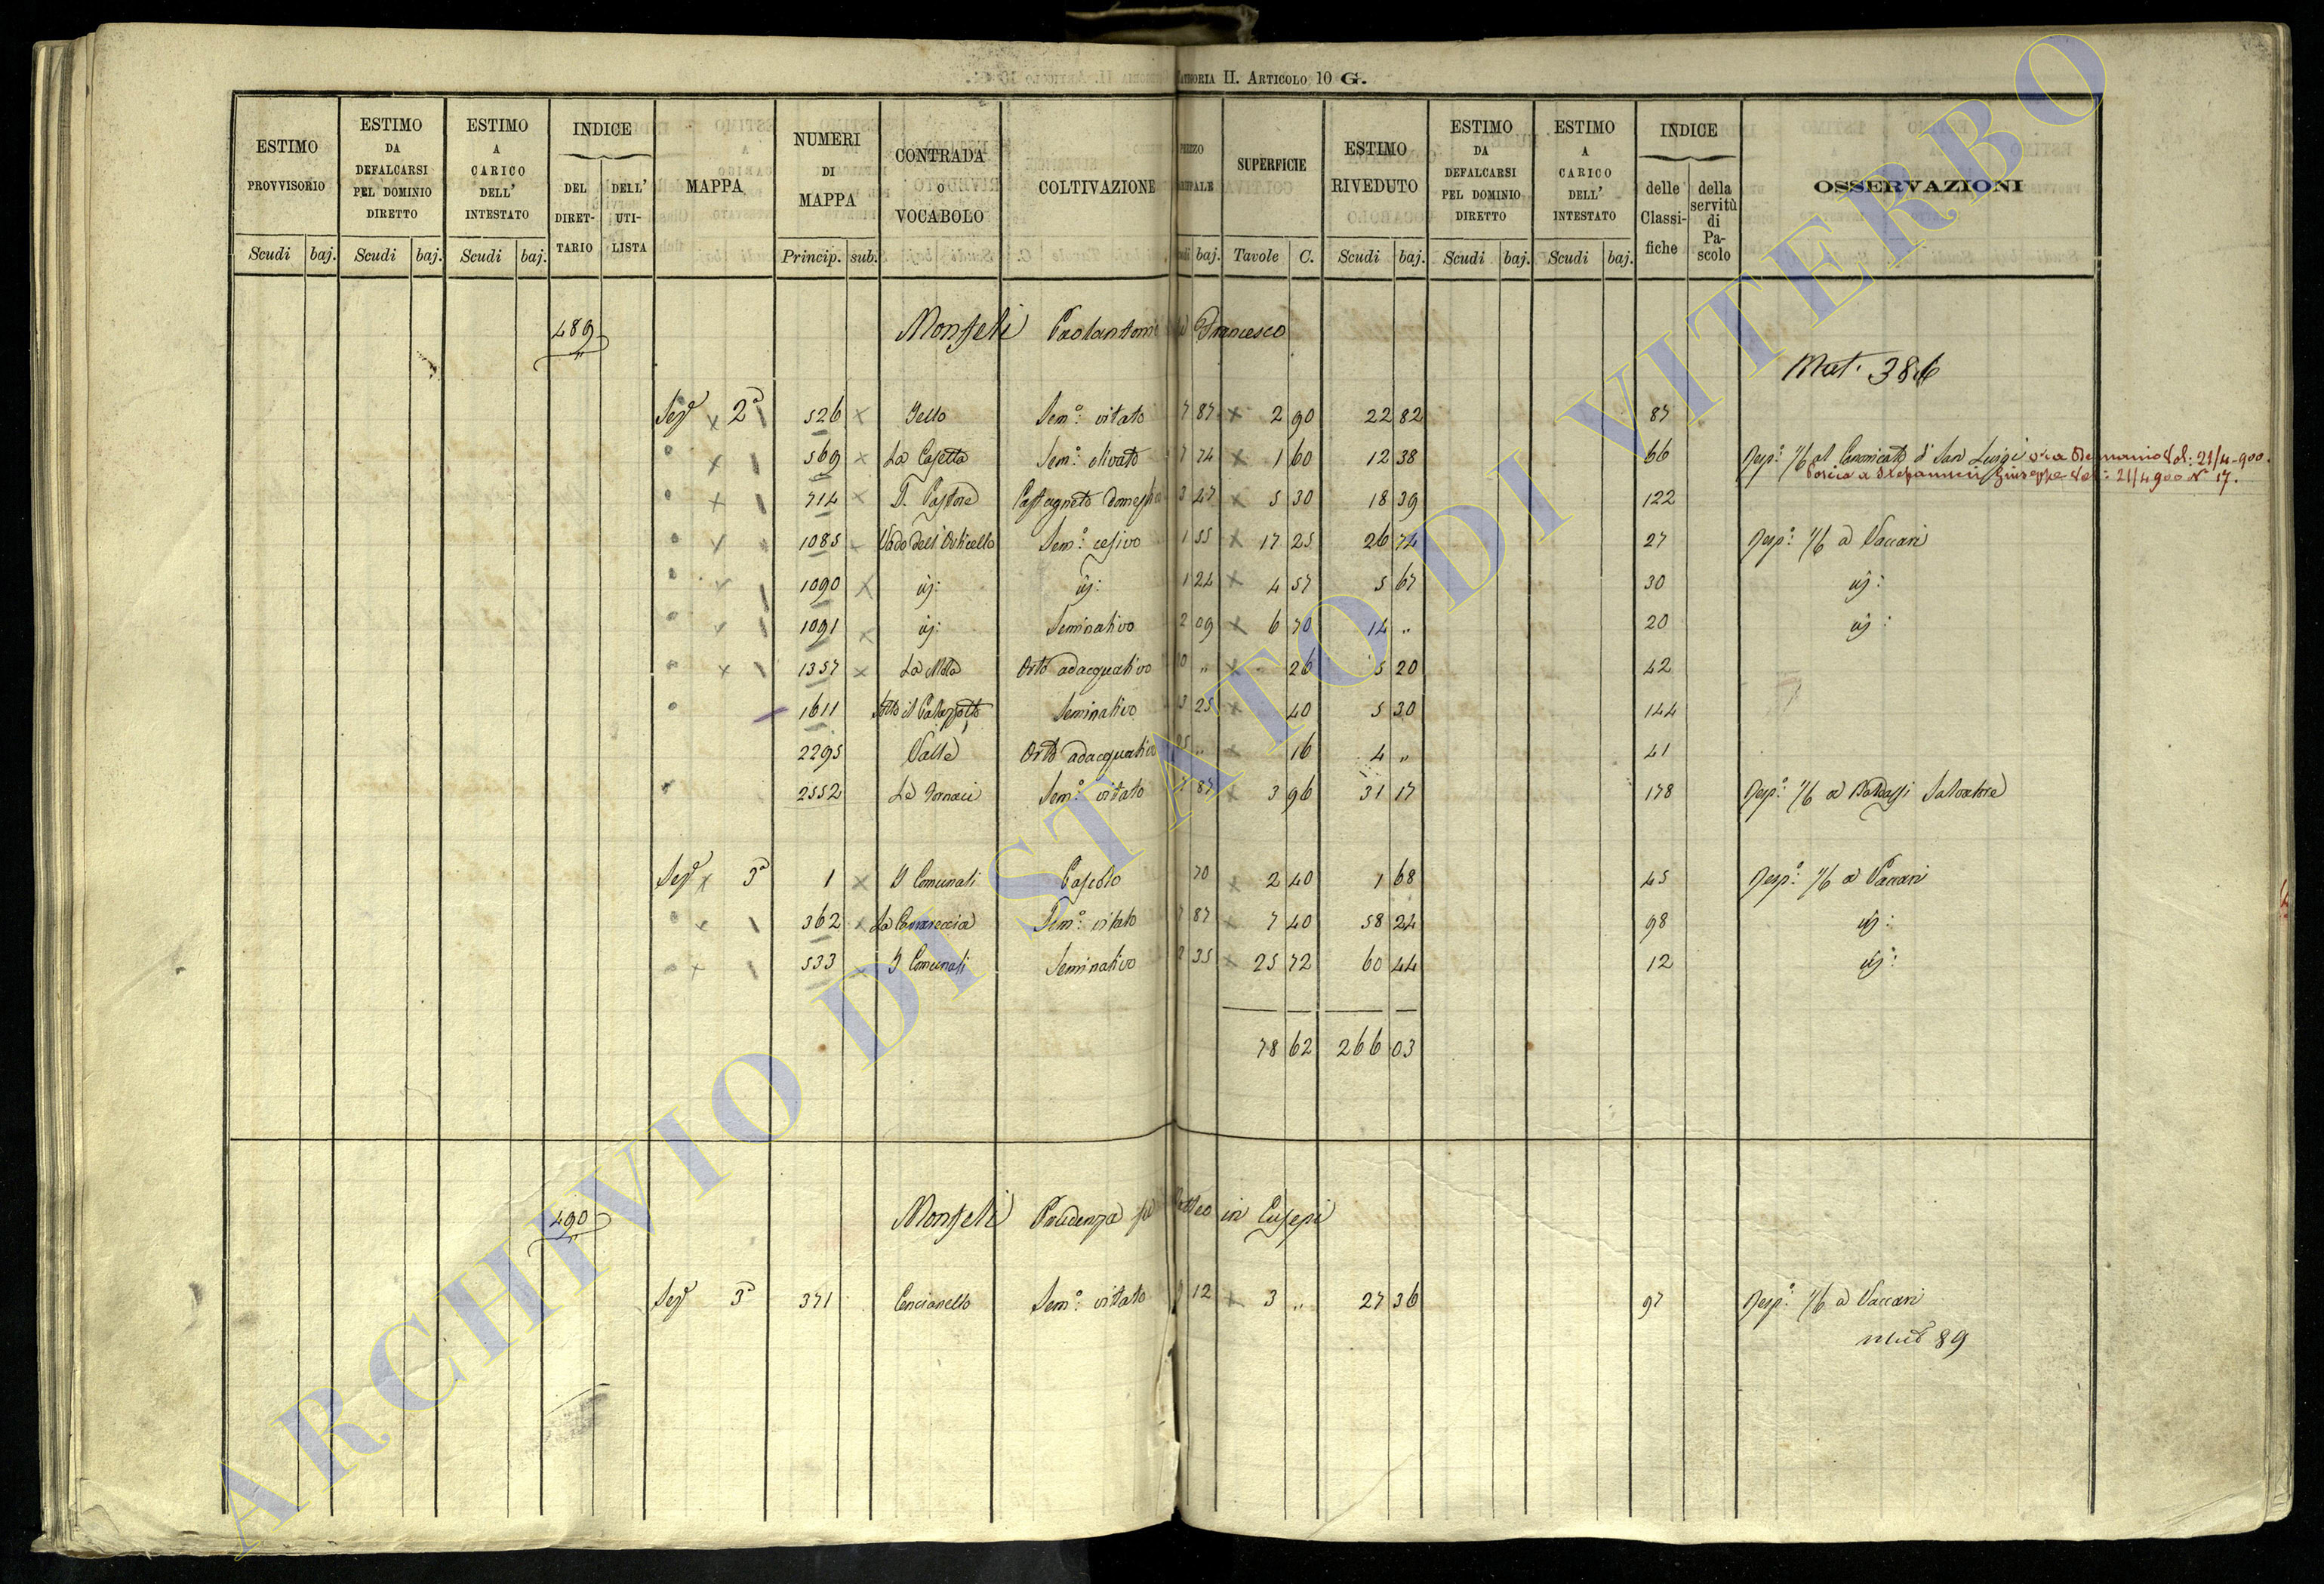 Categoria II. Articolo 10 G.
ESTIMO PROVVISORIO | ESTIMO DA DEFALCARSI PEL DOMINIO DIRETTO | ESTIMO A CARICO DELL' INTESTATO | INDICE DEL DIRETTARIO | DELL' UTILISTA | MAPPA | NUMERI DI MAPPA | CONTRADA O VOCABOLO | COLTIVAZIONE | SUPERFICIE | ESTIMO RIVEDUTO | ESTIMO DA DEFALCARSI PEL DOMINIO DIRETTO | ESTIMO A CARICO DELL' INTESTATO | INDICE delle Classifiche | della servitù di Pascolo | OSSERVAZIONI
Scudi | baj. | Scudi | baj. | Scudi | baj. | Princip. | sub. | baj. | Tavole | C. | Scudi | baj. | Scudi | baj. | Scudi | baj.
489 Monfeli Paolantonio Francesco
Mut. 386
Sez.e 2a 526 Jello Sem.o vitato 7 87 2 90 22 82 87
" 569 La Casetta Sem.o olivato 7 74 1 60 12 38 66 Resp.o 1/6 al Canonicato di San Luigi ora Demanio Vol: 21/4-900.
Porzio a Stefannucci Giuseppe Vol: 21/4 900 N 17.
" 714 P. Pastore Castagneto domestico 3 47 5 30 18 39 122
" 1085 Vado dell'Orticello Sem.o cesivo 1 55 17 25 26 74 27 Resp.o 1/6 a Vaccari
" 1090 id: id: 1 24 4 57 5 67 30 id:
" 1091 id: Seminativo 2 09 6 70 14 " 20 id:
" 1357 La Mola Orto adacquativo 20 " 26 5 20 42
" 1611 Sotto il Palazzotto Seminativo 13 25 40 5 30 144
2295 Valle Orto adacquativo 25 " 16 4 " 41
" 2552 Le Fornaci Sem.o vitato 7 87 3 96 31 17 178 Resp.o 1/6 a Baldassi Salvatore
Sez.e 3a 1 I Comunali Pascolo 70 2 40 1 68 45 Resp.o 1/6 a Vaccari
" 362 La Carrareccia Sem.o vitato 7 87 7 40 58 24 98 id:
" 533 I Comunali Seminativo 2 35 25 72 60 44 12 id:
78 62 266 03
490 Monfeli Prudenza fu Matteo in Eusepi
Sez.e 3a 371 Cencianello Sem.o vitato 9 12 3 " 27 36 97 Resp.o 1/6 a Vaccari
Mut 89
ARCHIVIO DI STATO DI VITERBO